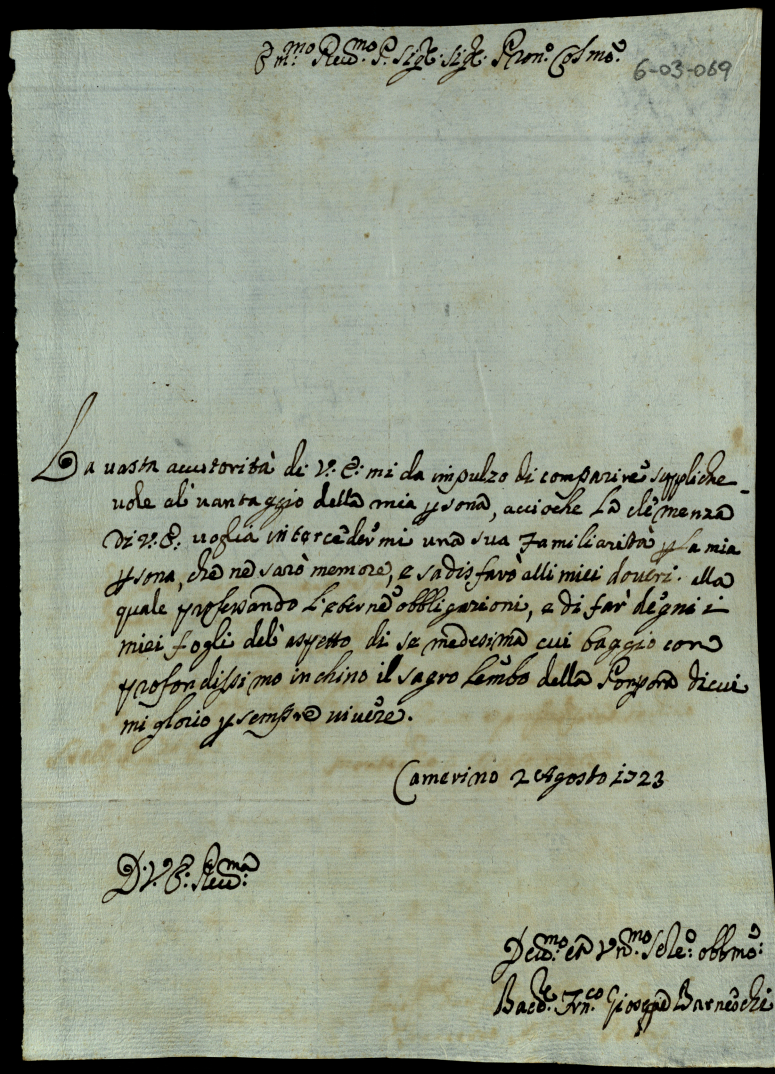 E.mo Reu.mo P. Sig.e Sig.e Pron.e Colmo.
6-03-069
La uasta auttorità di V: E: mi da impulzo di comparire suppliche-
uole al' uantaggio della mia psona, accioche La clemenza
di V: E: uoglia intercedermi una sua Familiarittà p la mia
psona, che ne sarò memore, e sadisfarò alli miei doueri. alla
quale professando l'eterne obbligazioni, e di far' degni i
miei fogli del' aspetto di se medesima cui baggio con
profondissimo inchino il sagro Lembo della Porpora di cui
mi glorio p sempre uiuere.
Camerino 2 Agosto 1723
D: V: E: Reu.ma
Deu.mo et V.mo Se.e: obbmo:
Gioseppe